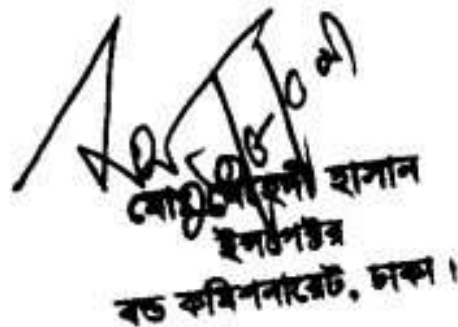 মোঃ মেহেদী হাসান
ইন্সপেক্টর
বন্ড কমিশনারেট, ঢাকা।